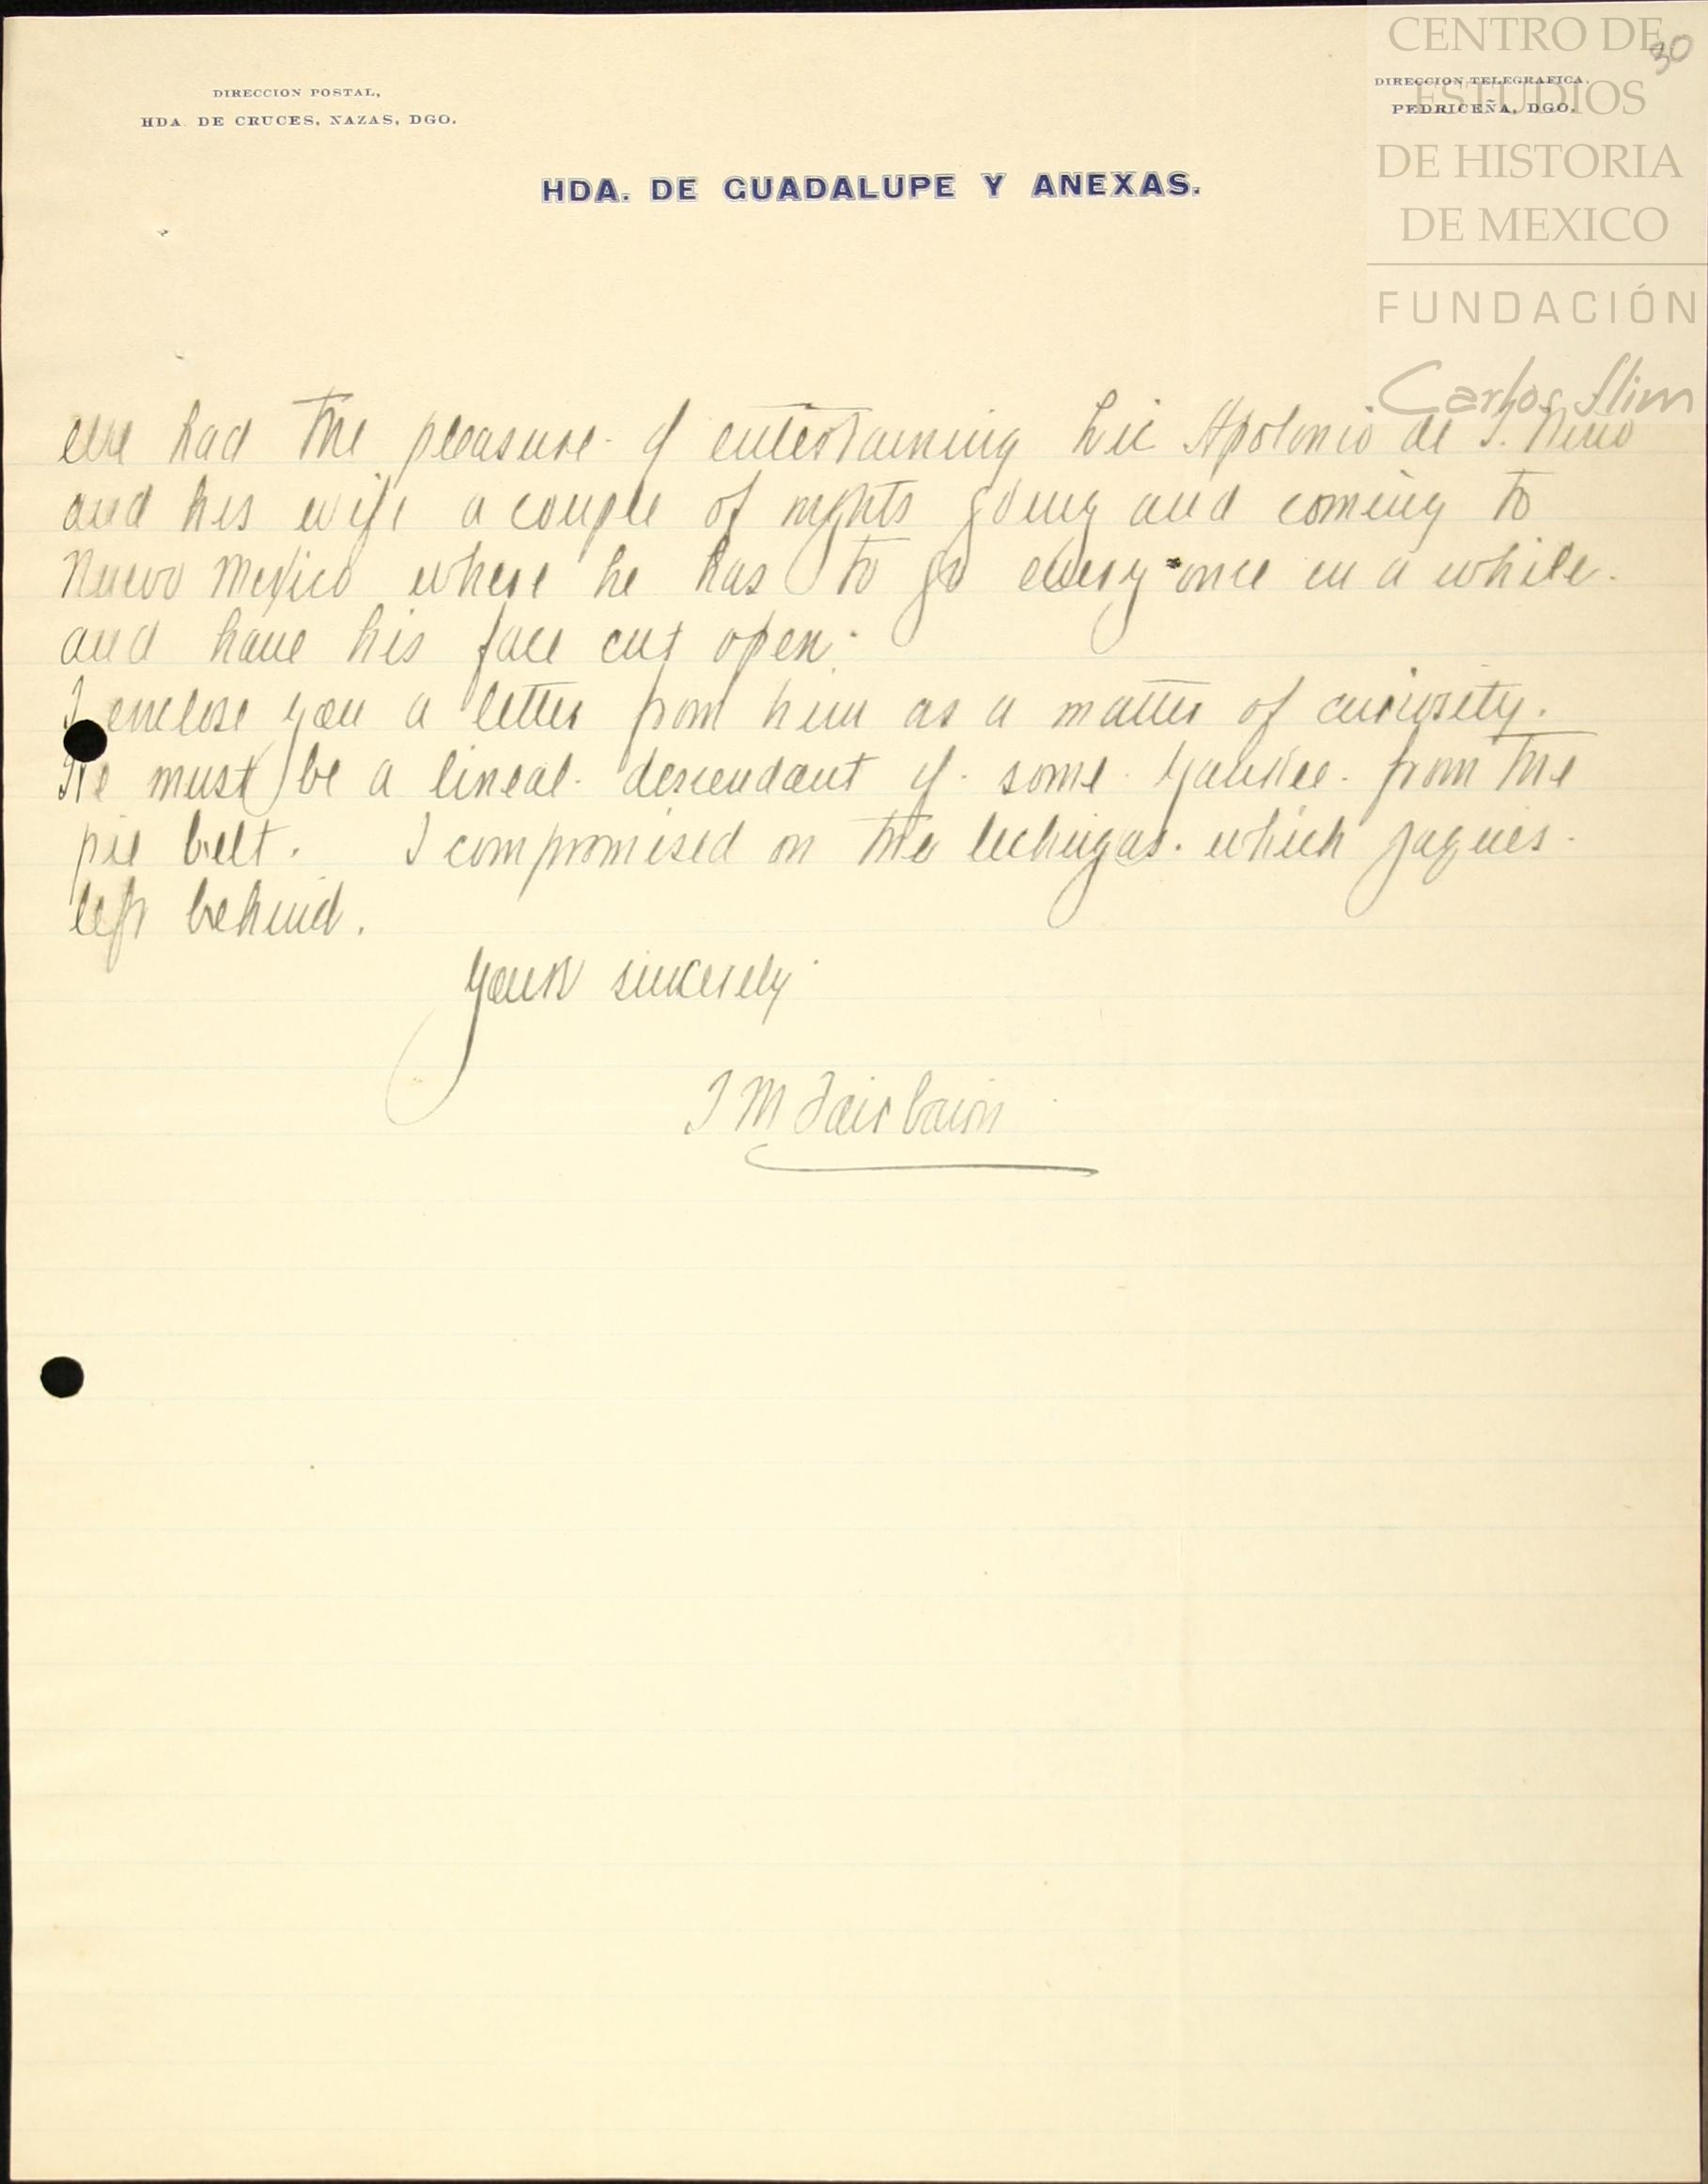 CENTRO DE
ESTUDIOS
DE HISTORIA
DE MEXICO
FUNDACIÓN
Carlos Slim
30
DIRECCION POSTAL,
HDA. DE CRUCES, NAZAS, DGO.
DIRECCION TELEGRAFICA.
PEDRICEÑA, DGO.
HDA. DE GUADALUPE Y ANEXAS.
We had the pleasure of entertaining Lic Apolonio de S. Nino
and his wife a couple of nights going and coming to
Nuevo Mexico where he has to go every once in a while.
and have his face cut open.
I enclose you a letter from him as a matter of curiosity.
He must be a lineal descendant of some Yankee from the
pie belt. I compromised on the lechugas. which Jaques
left behind.
Yours sincerely
J M Fairbairn